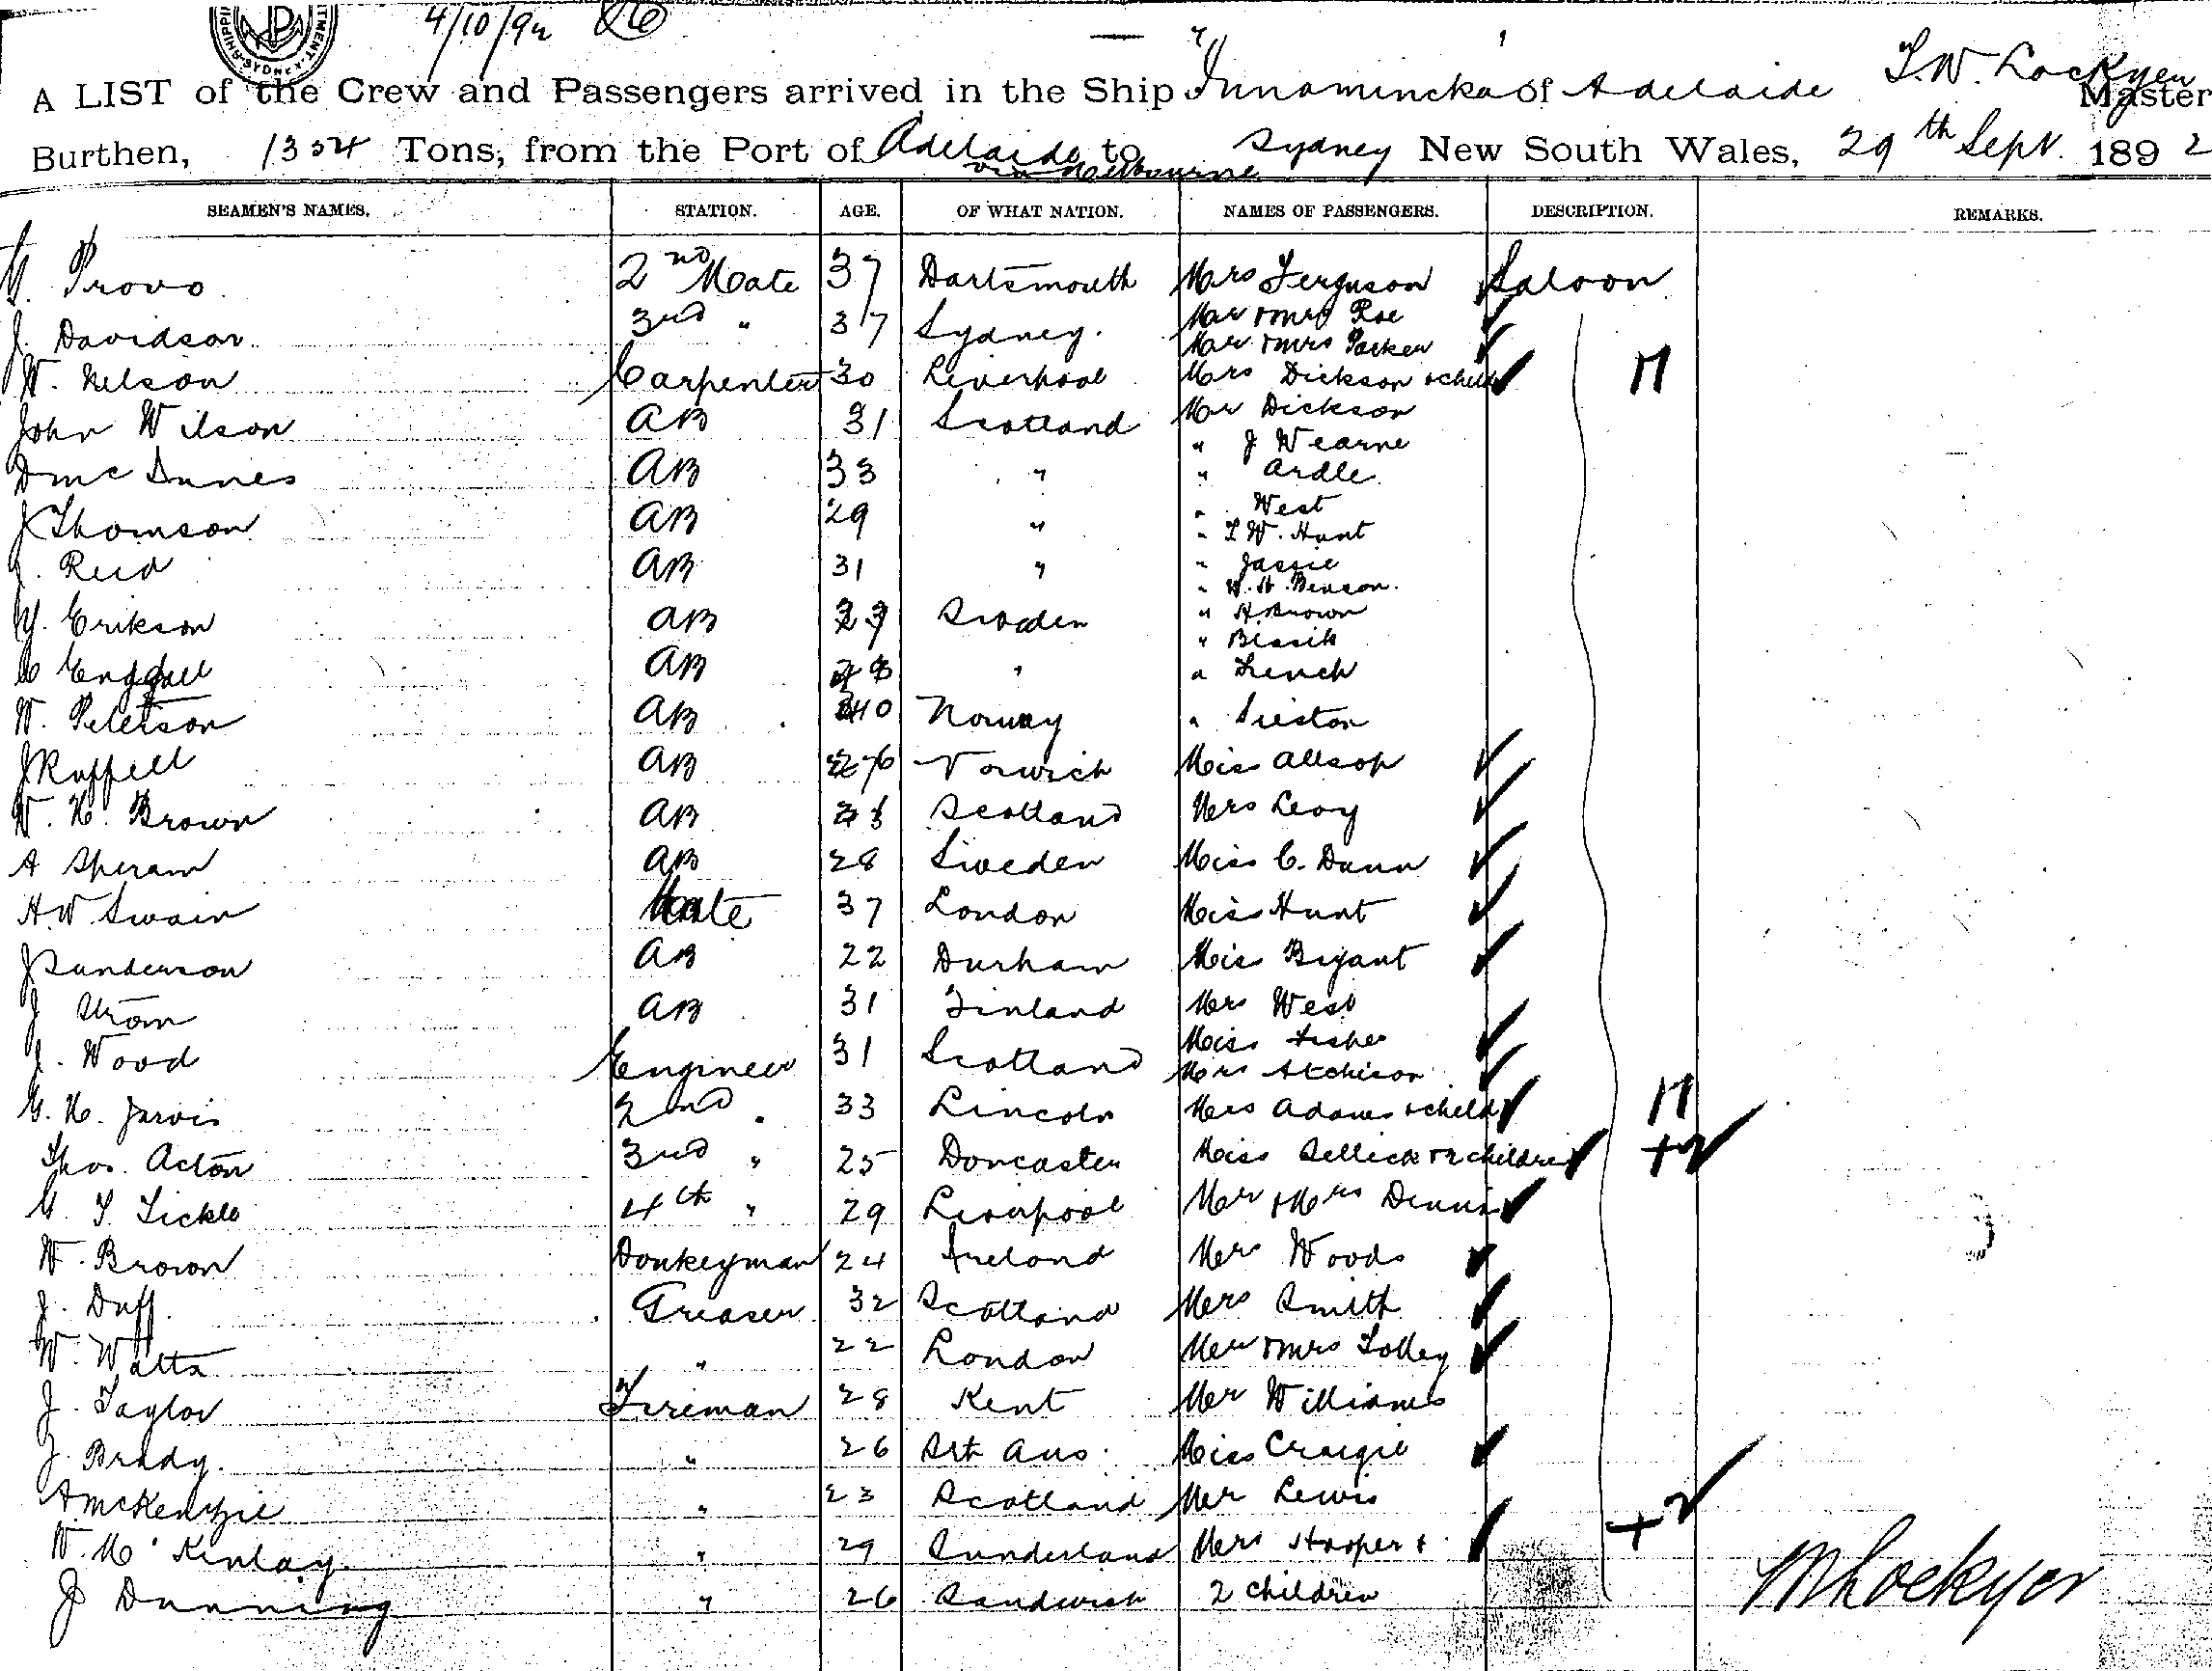 4/10/92 26
A LIST of the Crew and Passengers arrived in the Ship "Innamincka" of Adelaide T.W. Lockyer Master
Burthen, 1334 Tons, from the Port of Adelaide to Sydney New South Wales, 29th Sept. 1892
via Melbourne
SEAMEN'S NAMES. STATION. AGE. OF WHAT NATION. NAMES OF PASSENGERS. DESCRIPTION. REMARKS.
G. Provo 2nd Mate 37 Dartsmouth Mrs Ferguson Saloon
J. Davidson 3rd " 37 Sydney. Mr & Mrs Roe
Mr & Mrs Parker
W. Nelson Carpenter 30 Liverpool Mrs Dickson & child
John Wilson AB 31 Scotland Mr Dickson
" J Wearne
D Mc Innes AB 33 " " Ardle
" West
J Thomson AB 29 " " T W. Hunt
J. Reid AB 31 " " Jassie
" W. H. Benson.
Y. Erikson AB Sweden " H. Brown
" Bissik
C AB " " Lench
W. Peterson AB 40 Norway "
J Ruffell AB 26 Norwich Miss Allsop
W. H. Brown AB Scotland Mrs Levy
A Speram AB 28 Sweden Miss C. Dunn
H.W Swain Mate 37 London Miss Hunt
J Sunderson AB 22 Durham Miss Bryant
J Strom AB 31 Finland Mrs West
Miss Fisher
J. Wood Engineer 31 Scotland Mrs Atchison
G. H. Jarvis 2nd " 33 Lincoln Mrs Adams & child
Thos. Acton 3rd " 25 Doncaster Miss Sellick & 2 children +2
G. T. Tickle 4th " 29 Liverpool Mr & Mrs Dennis
W. Brown Donkeyman 24 Ireland Mrs Woods
J. Duff Greaser 32 Scotland Mrs Smith
W. Watts " 22 London Mr & Mrs Tolley
J. Taylor Fireman 28 Kent Mr Williams
J. Brady. " 26 Sth Aus. Miss Craigie
A McKenzie " 23 Scotland Mr Lewis
W. Mc Kinlay " 29 Sunderland Mrs Hooper & +2
J Dunning " 26 Sandwich 2 children
Lockyer